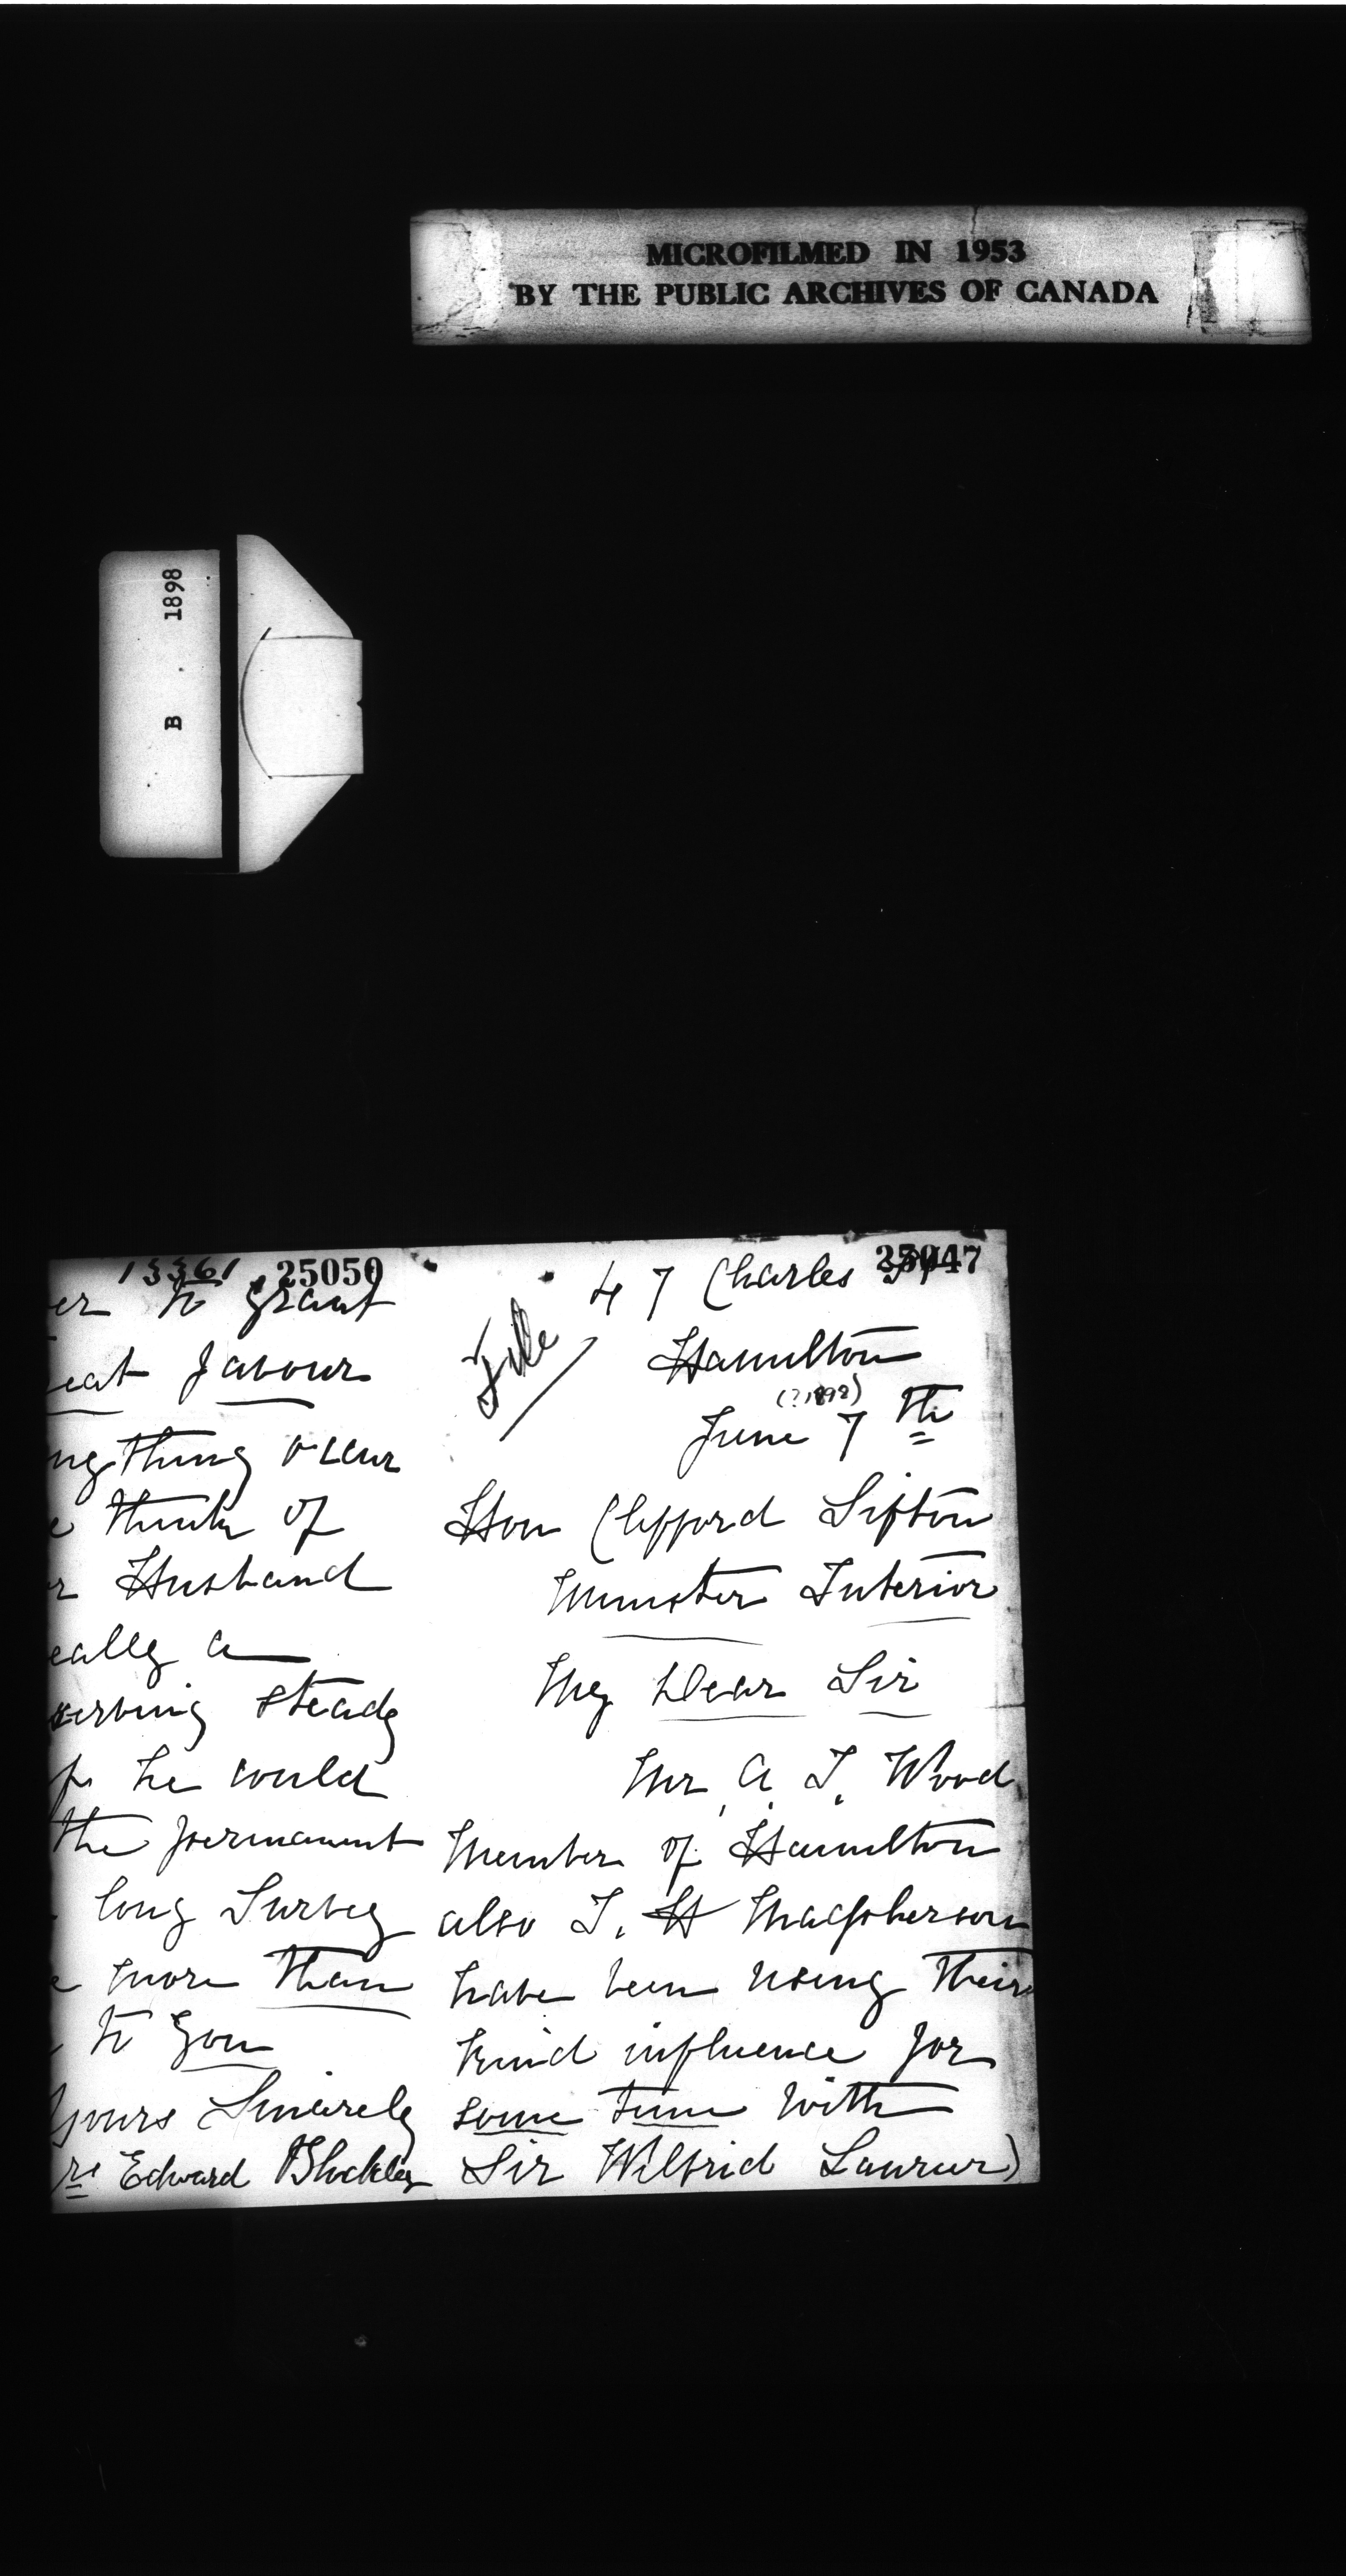 MICROFILMED IN 1953
BY THE PUBLIC ARCHIVES OF CANADA
B . 1898
13361 25050
er to grant
eat favour
ng thing occur
e think of
r Husband
eally a
serving steady
he would
the permanent
long Survey
e more than
to you
Yours Sincerely
rs Edward Blockley
25047
47 Charles St
File
Hamilton
(?1898)
June 7th
Hon Clifford Sifton
Minister Interior
My Dear Sir
Mr. A. T. Wood
Member of Hamilton
also T. H Macpherson
have been using their
kind influence for
some time with
Sir Wilfrid Laurier)